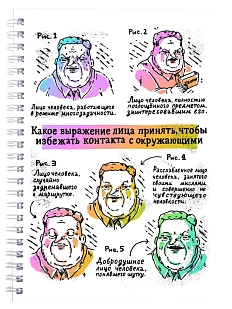 Рис. 1
Рис. 2
Лицо человека, работающего
в режиме многозадачности.
Лицо человека, полностью
поглощённого предметом,
заинтересовавшим его.
Какое выражение лица принять, чтобы
избежать контакта с окружающими
Рис. 3
Лицо человека,
случайно
задремавшего
в маршрутке.
Рис. 4
Расслабленное лицо
человека, занятого
своими мыслями
и совершенно не
чувствующего
неловкости.
Рис. 5
Добродушное
лицо человека,
понявшего шутку.